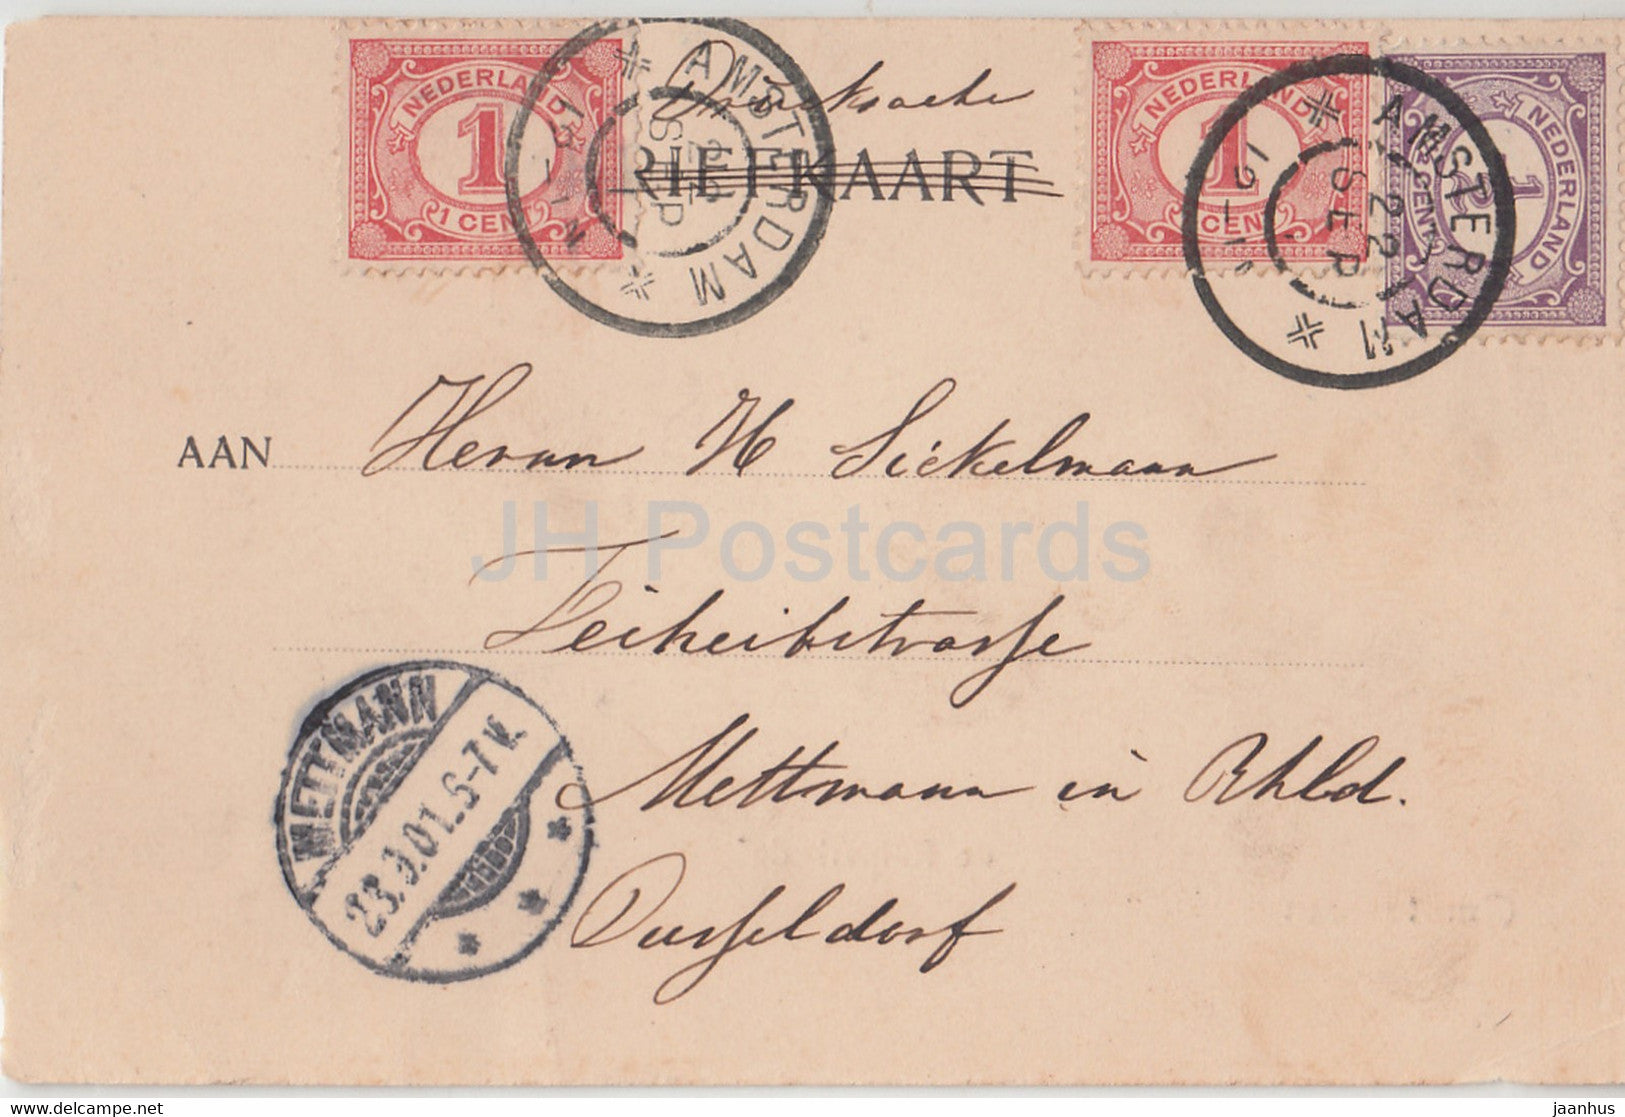 NEDERLAND
1
1 CENT
AMSTERDAM
22 SEP
Drucksache
BRIEFKAART
NEDERLAND
1
CENT
AMSTERDAM
22 SEP
NEDERLAND
CENT
AAN Herrn H Sickelmann
JH Postcards
Mettmann in Rhld.
Dusseldorf
METTMANN
23.9.01.6-7V.
jaanhus
delcampe.net